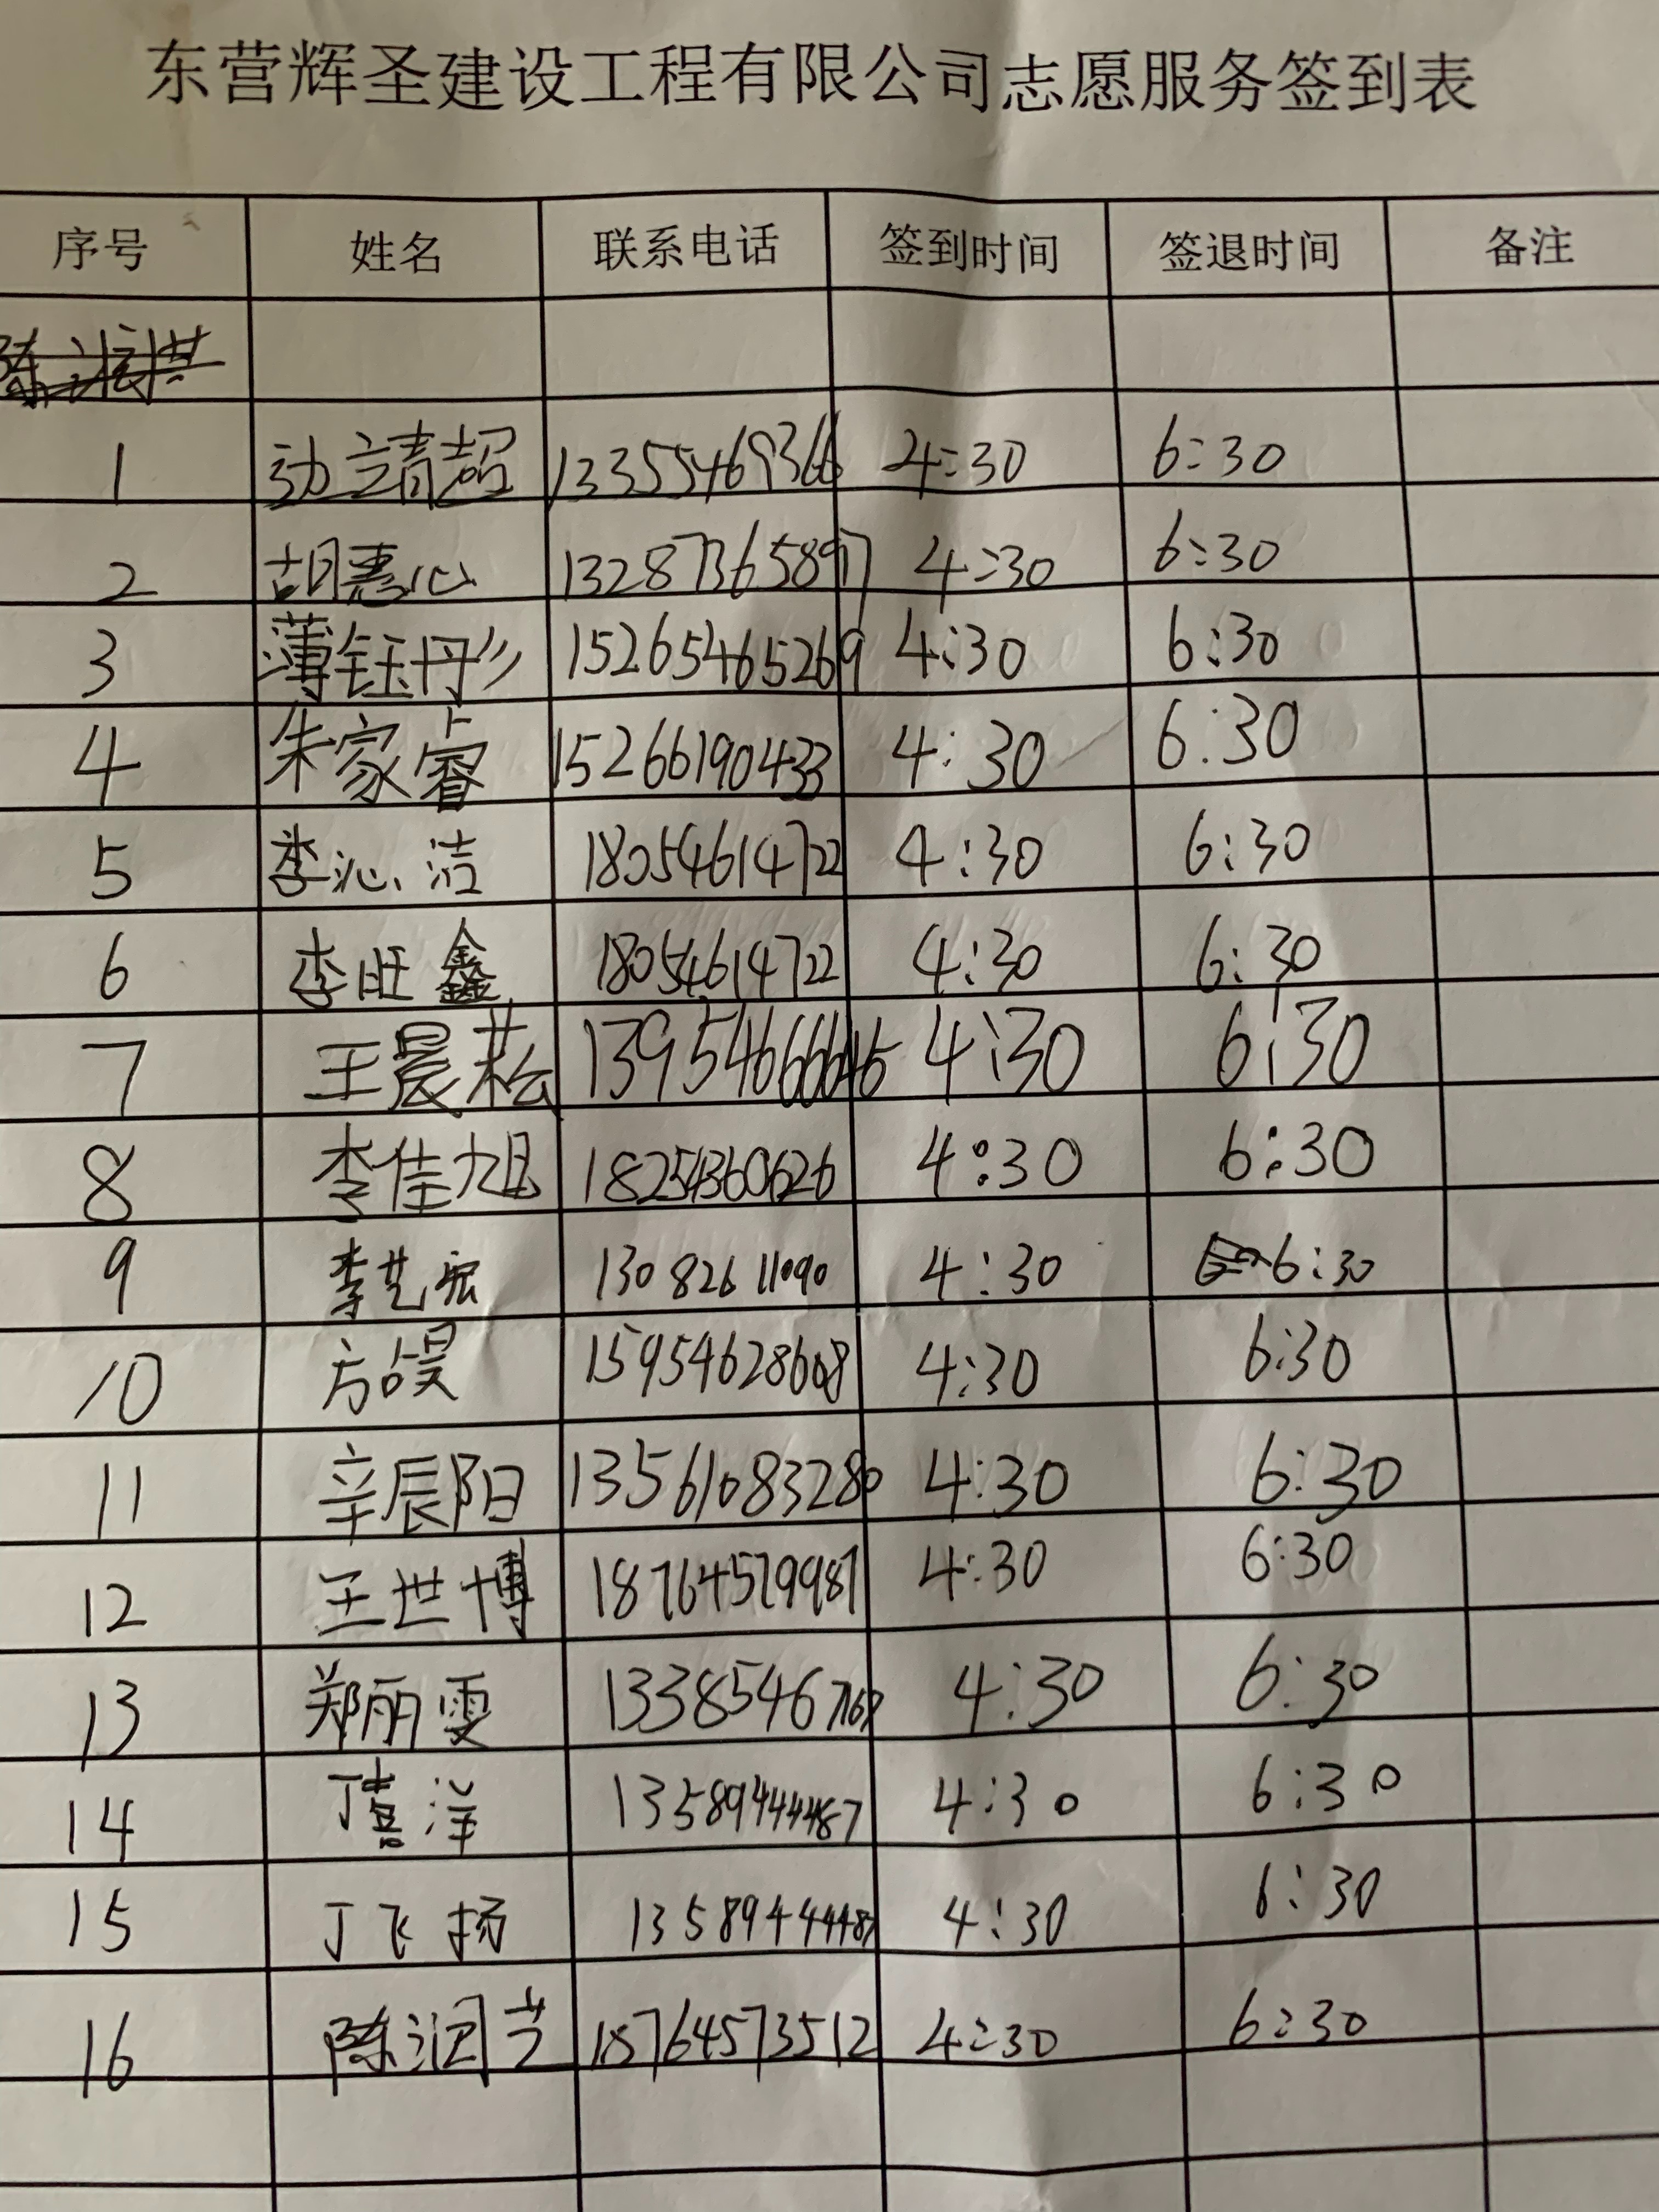 东营辉圣建设工程有限公司志愿服务签到表
序号 姓名 联系电话 签到时间 签退时间 备注
1 靖超 13355469366 4:30 6:30
2 胡惠心 13287365897 4:30 6:30
3 薄钰彤 15265465269 4:30 6:30
4 朱家睿 15266190433 4:30 6:30
5 李沁洁 18054614722 4:30 6:30
6 李旺鑫 18054614722 4:30 6:30
7 王晨菘 4:30 6:30
8 李佳旭 18254360626 4:30 6:30
9 李艺宏 13082611090 4:30 6:30
10 方皓昊 15954628608 4:30 6:30
11 辛辰阳 13561083280 4:30 6:30
12 王世博 18764579987 4:30 6:30
13 郑丽雯 4:30 6:30
14 丁喜洋 13589444487 4:30 6:30
15 丁飞扬 13589444487 4:30 6:30
16 陈润芝 18764573512 4:30 6:30